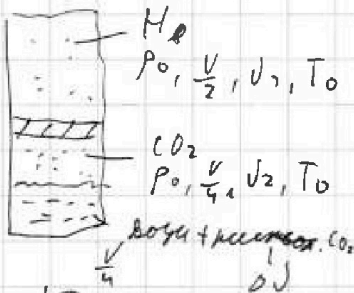 He
P₀, V/2, ν₁, T₀
CO₂
P₀, V/4, ν₂, T₀
V/4
вода + CO₂